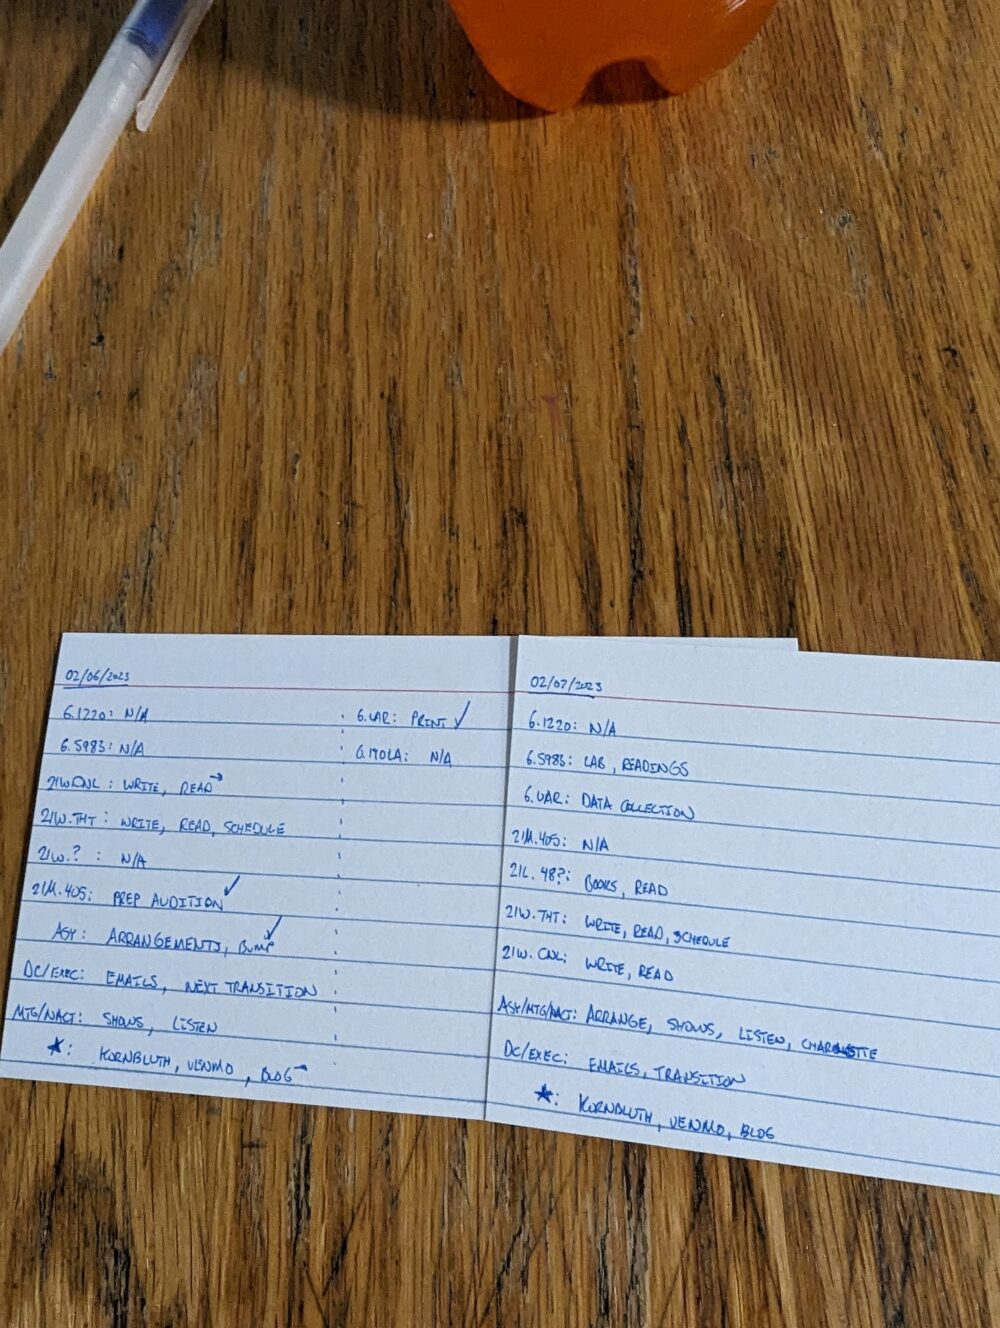 02/06/2023
6.1220: N/A
6.UAR: PRINT ✓
6.5983: N/A
6.170LA: N/A
21W.CNL: WRITE, READ →
21W.THT: WRITE, READ, SCHEDULE
21W.?: N/A
21M.405: PREP AUDITION ✓
ASY: ARRANGEMENTS, BUMP ✓
DC/EXEC: EMAILS, NEXT TRANSITION
MTG/NACT: SHOWS, LISTEN
★: KORNBLUTH, VENMO, BLOG →
02/07/2023
6.1220: N/A
6.5983: LAB, READINGS
6.UAR: DATA COLLECTION
21M.405: N/A
21L.48?: BOOKS, READ
21W.THT: WRITE, READ, SCHEDULE
21W.CNL: WRITE, READ
ASY/MTG/NACT: ARRANGE, SHOWS, LISTEN,
DC/EXEC: EMAILS, TRANSITION
★: KORNBLUTH, VENMO, BLOG